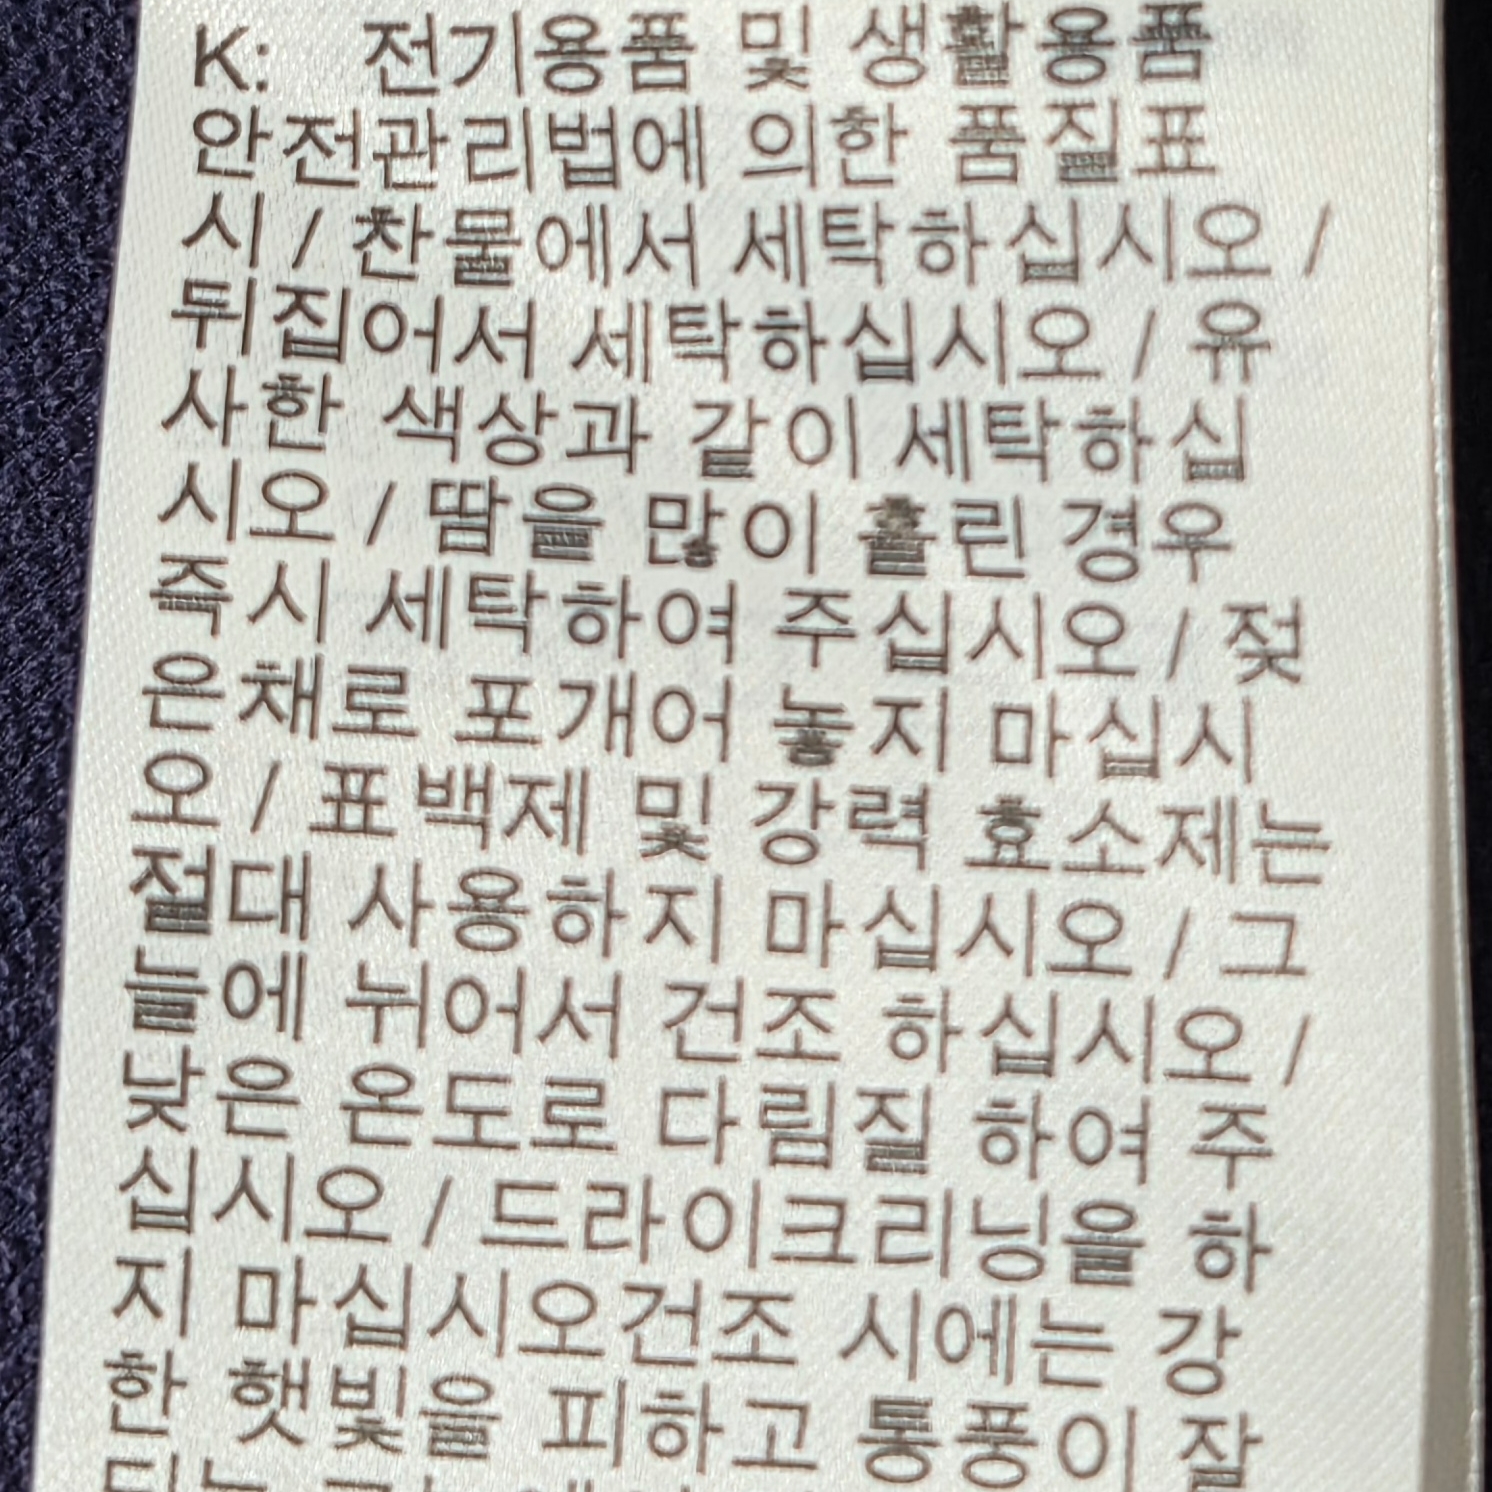 K: 전기용품 및 생활용품
안전관리법에 의한 품질표
시 / 찬물에서 세탁하십시오 /
뒤집어서 세탁하십시오 / 유
사한 색상과 같이 세탁하십
시오 / 땀을 많이 흘린 경우
즉시 세탁하여 주십시오 / 젖
은채로 포개어 놓지 마십시
오 / 표백제 및 강력 효소제는
절대 사용하지 마십시오 / 그
늘에 뉘어서 건조 하십시오 /
낮은 온도로 다림질 하여 주
십시오 / 드라이크리닝을 하
지 마십시오건조 시에는 강
한 햇빛을 피하고 통풍이 잘